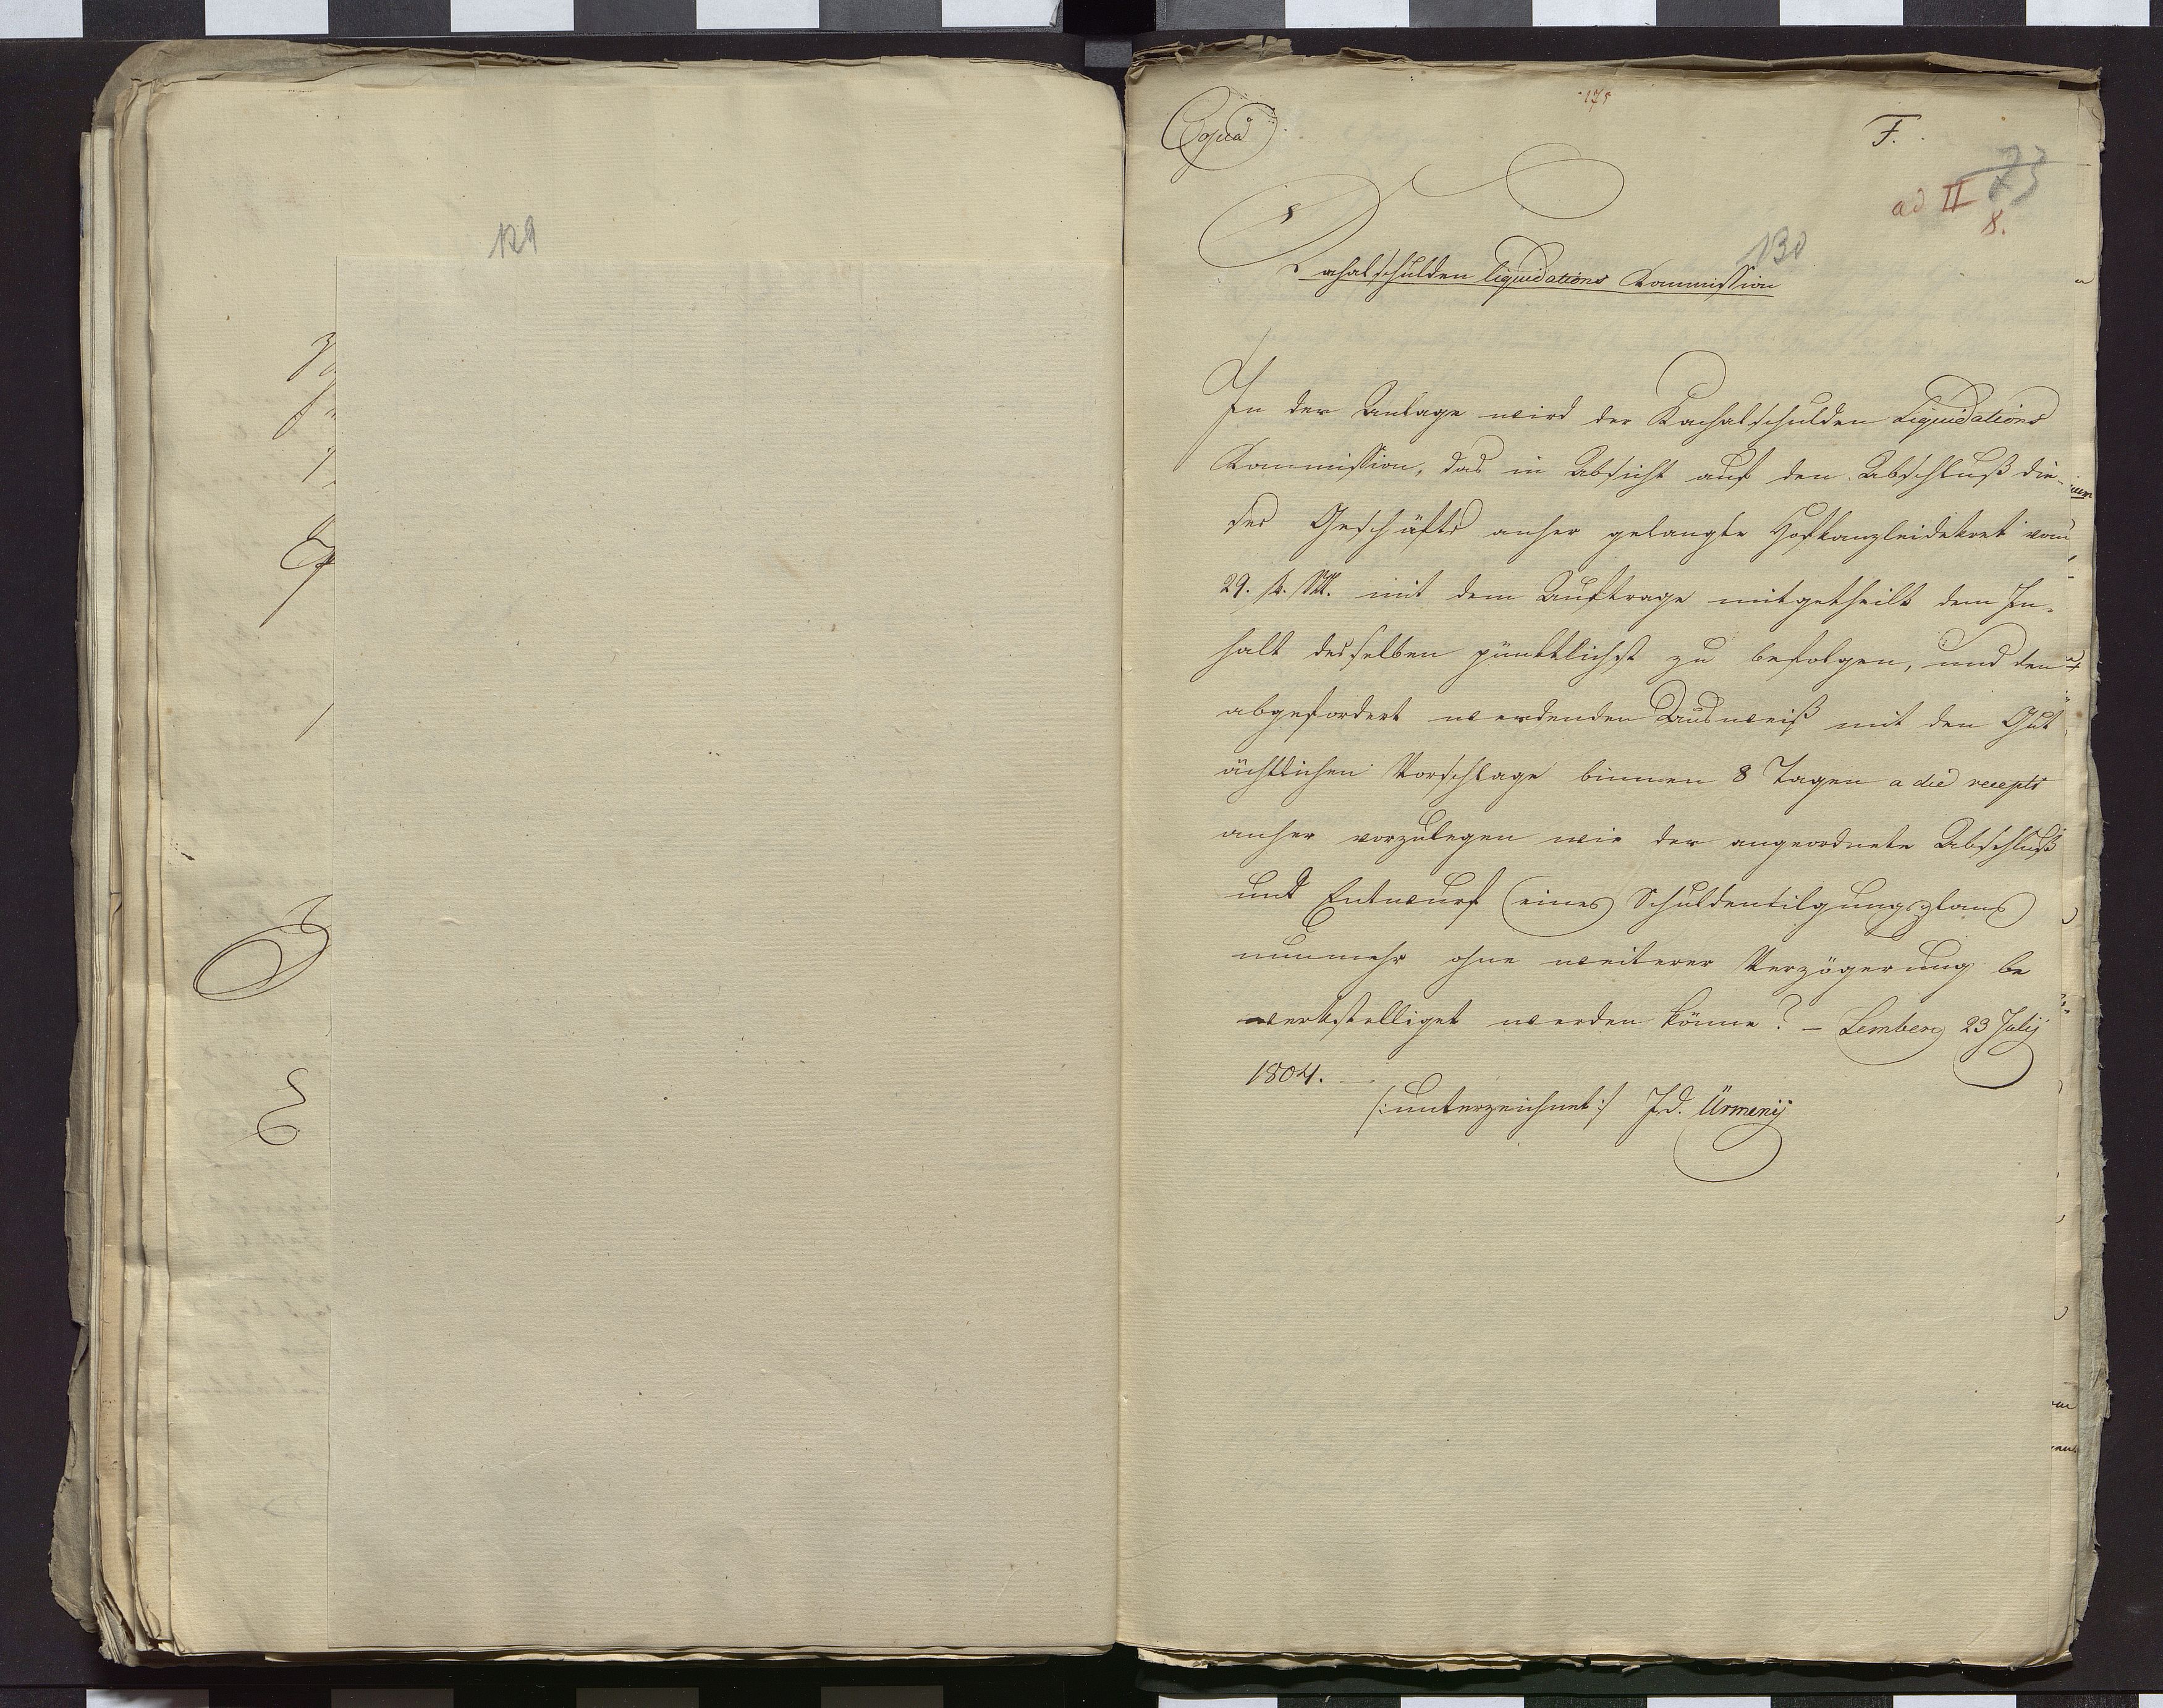 129
175
Copia
F.
73
ad II
8.
130
Kahalschulden liquidations Kommission
In der Anlage wird der Kachalschulden Liquidations
Kommission, das in Absicht auf den Abschluß die-
ses Geschäfts anher gelangte Hofkanzleidekret vom
29. v. M. mit dem Auftrage mitgetheilt dem In-
halt desselben pünktlichst zu befolgen, und den
abgefordert werdenden Ausweiß mit den Gut
ächtlichen Vorschlage binnen 8 Tagen a die recepti
anher vorzulegen wie der angeordnete Abschluß
und Entwurf eines Schuldentilgungsplans
nunmehr ohne weiterer Verzögerung be
werkstelliget werden könne? – Lemberg 23 Julÿ
1804. –
/:unterzeichnet:/ Ürmenÿ